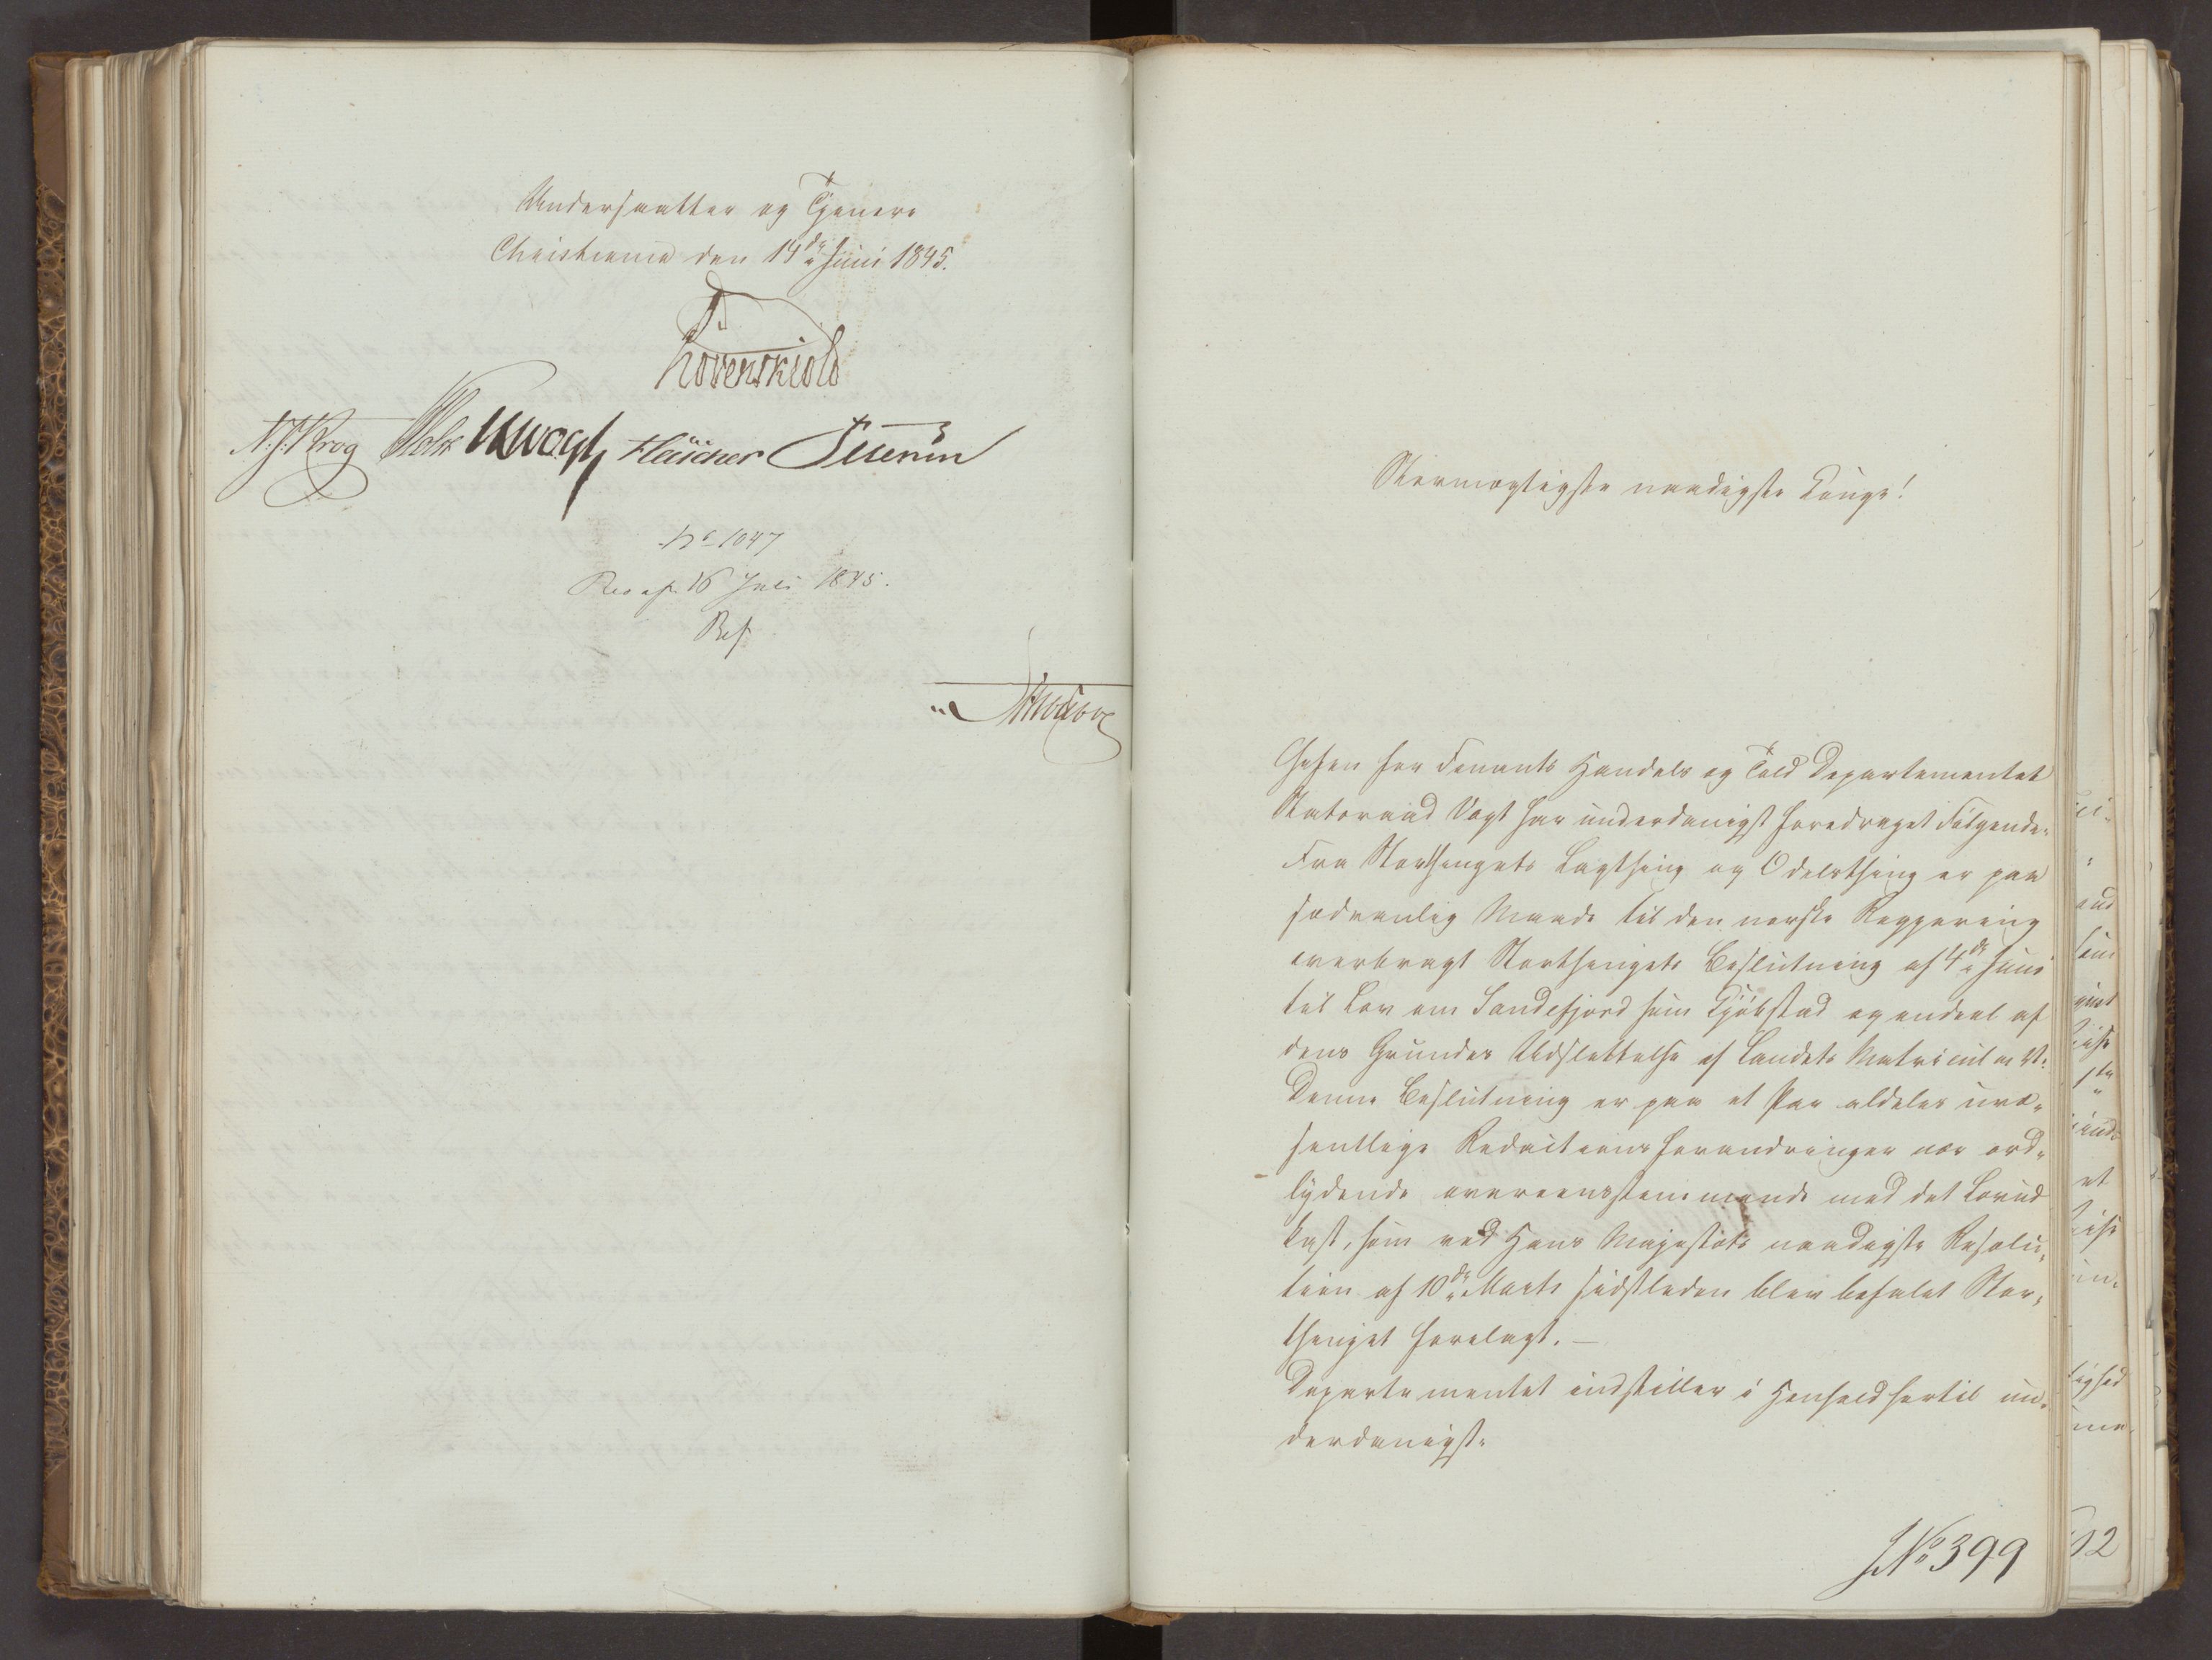 Undersaatter og Tjenere
Christiania den 14de Juni 1845.
Løvenskiold
N. J. Krog Holst JHVogt Fleischer Petersen
No 1047
Res af 16 Juli 1845.
Stormægtigste naadigste Konge!
Chefen for Finants Handels og Told Departementet
Statsraad Vogt har underdanigst foredraget Følgende:
Fra Storthingets Lagthing og Odelsthing er paa
sædvanlig Maade til den norske Regjering
overbragt Storthingets Beslutning af 4de Juni
til Lov om Sandefjord som Kjøbstad og endeel af
dens Grundes Udslettelse af Landets Matricul m. V.
Denne Beslutning er paa et Par aldeles uvæ-
sentlige Redactionsforandringer nær ord-
lydende overeensstemmende med det Lovud
kast, som ved Hans Majestæts naadigste Resolu-
tion af 10de Marts sidstleden blev befalet Stor-
thinget forelagt. —
Departementet indstiller i Henhold hertil un-
derdanigst:
JNo 399